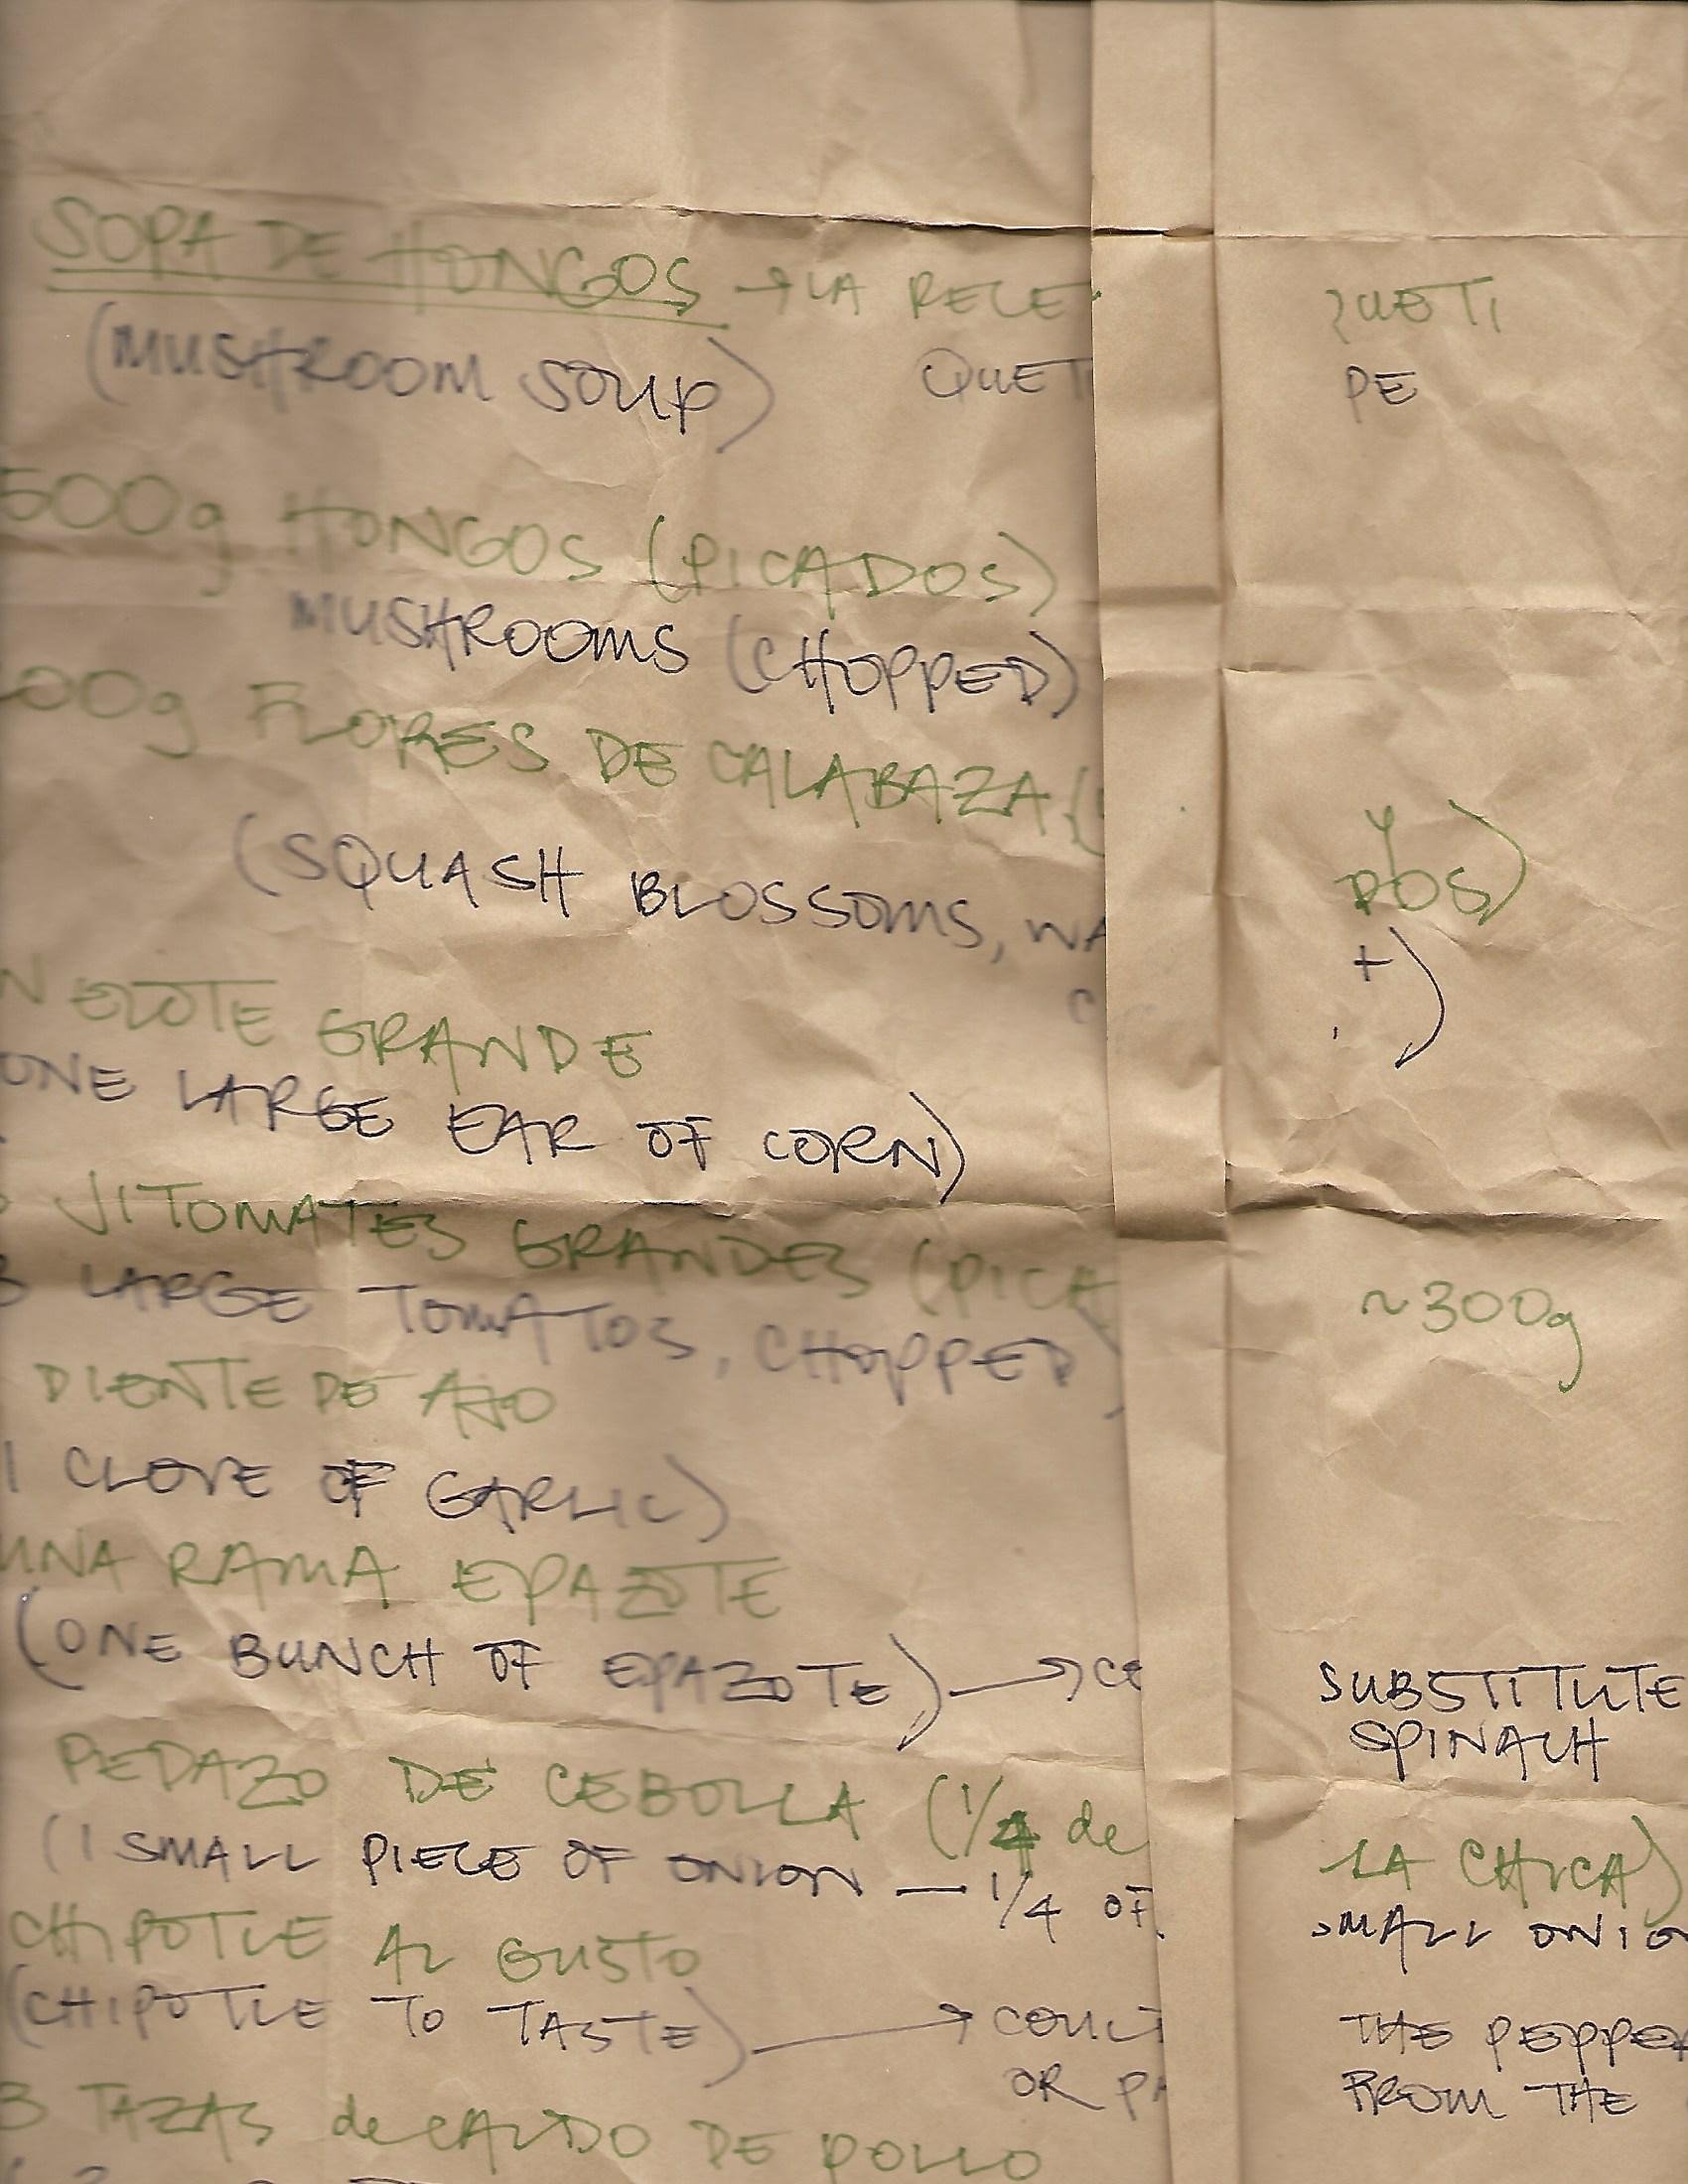 SOPA DE HONGOS → LA RECE QUETI
(MUSHROOM SOUP) QUET PE
500g HONGOS (PICADOS)
MUSHROOMS (CHOPPED)
00g FLORES DE CALABAZA ( Y
DOS)
(SQUASH BLOSSOMS, WA +)
N ELOTE GRANDE
ONE LARGE EAR OF CORN)
JITOMATES GRANDES (PICA ~300g
3 LARGE TOMATOS, CHOPPED)
DIENTE DE AJO
1 CLOVE OF GARLIC)
UNA RAMA EPAZOTE
(ONE BUNCH OF EPAZOTE) → SUBSTITUTE
SPINACH
PEDAZO DE CEBOLLA (1/4 de LA CHICA)
(1 SMALL PIECE OF ONION — 1/4 OF SMALL ONIO
CHIPOTLE AL GUSTO
(CHIPOTLE TO TASTE) → COUL THE PEPPE
OR PA FROM THE
3 TAZAS de CALDO DE POLLO